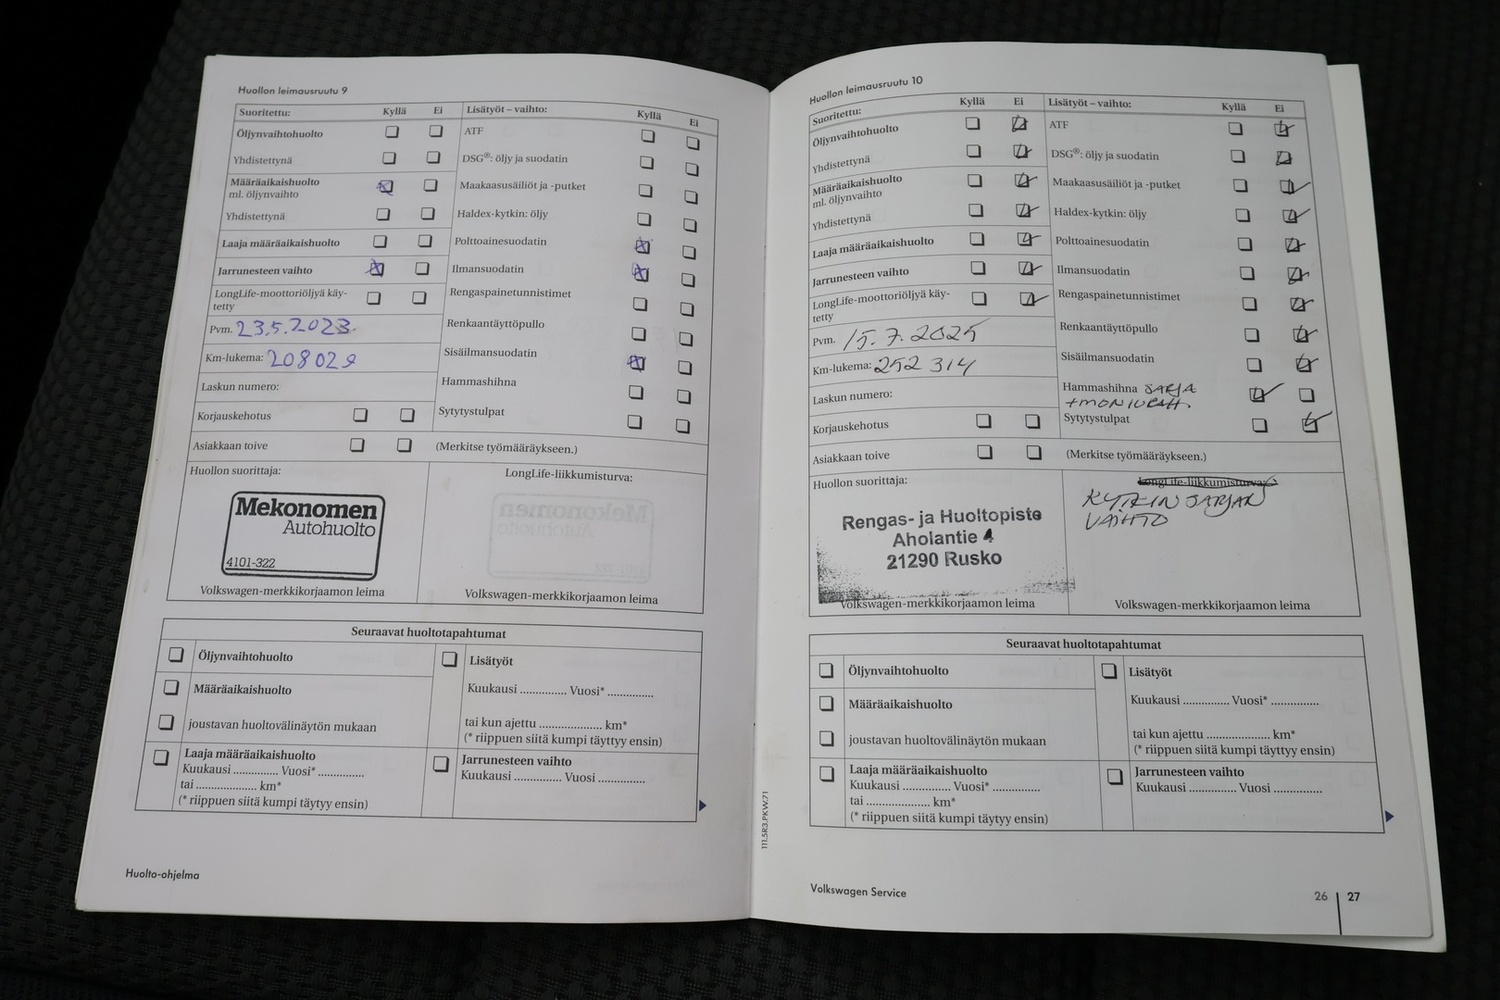 Huollon leimausruutu 9
Suoritettu: Kyllä Ei Lisätyöt – vaihto: Kyllä Ei
Öljynvaihtohuolto
Yhdistettynä
Määräaikaishuolto
ml. öljynvaihto
Yhdistettynä
Laaja määräaikaishuolto
Jarrunesteen vaihto
LongLife-moottoriöljyä käy-
tetty
Pvm. 23.5.2023
Km-lukema: 208029
Laskun numero:
Korjauskehotus
Asiakkaan toive
ATF
DSG®: öljy ja suodatin
Maakaasusäiliöt ja -putket
Haldex-kytkin: öljy
Polttoainesuodatin
Ilmansuodatin
Rengaspainetunnistimet
Renkaantäyttöpullo
Sisäilmansuodatin
Hammashihna
Sytytystulpat
(Merkitse työmääräykseen.)
Huollon suorittaja:
Mekonomen
Autohuolto
4101-322
Volkswagen-merkkikorjaamon leima
LongLife-liikkumisturva:
Volkswagen-merkkikorjaamon leima
Seuraavat huoltotapahtumat
Öljynvaihtohuolto
Määräaikaishuolto
joustavan huoltovälinäytön mukaan
Laaja määräaikaishuolto
Kuukausi .............. Vuosi* ..............
tai .................... km*
(* riippuen siitä kumpi täytyy ensin)
Lisätyöt
Kuukausi .............. Vuosi* ..............
tai kun ajettu .................... km*
(* riippuen siitä kumpi täyttyy ensin)
Jarrunesteen vaihto
Kuukausi .............. Vuosi ..............
Huolto-ohjelma
111.5R3.PKW.71
Huollon leimausruutu 10
Suoritettu: Kyllä Ei Lisätyöt – vaihto: Kyllä Ei
Öljynvaihtohuolto
Yhdistettynä
Määräaikaishuolto
ml. öljynvaihto
Yhdistettynä
Laaja määräaikaishuolto
Jarrunesteen vaihto
LongLife-moottoriöljyä käy-
tetty
Pvm. 15.7.2025
Km-lukema: 252 314
Laskun numero:
Korjauskehotus
Asiakkaan toive
ATF
DSG®: öljy ja suodatin
Maakaasusäiliöt ja -putket
Haldex-kytkin: öljy
Polttoainesuodatin
Ilmansuodatin
Rengaspainetunnistimet
Renkaantäyttöpullo
Sisäilmansuodatin
Hammashihna SARJA
Sytytystulpat
(Merkitse työmääräykseen.)
Huollon suorittaja:
Rengas- ja Huoltopiste
Aholantie 4
21290 Rusko
Volkswagen-merkkikorjaamon leima
LongLife-liikkumisturva:
KYTKIN SARJAN
VAIHTO
Volkswagen-merkkikorjaamon leima
Seuraavat huoltotapahtumat
Öljynvaihtohuolto
Määräaikaishuolto
joustavan huoltovälinäytön mukaan
Laaja määräaikaishuolto
Kuukausi .............. Vuosi* ..............
tai .................... km*
(* riippuen siitä kumpi täytyy ensin)
Lisätyöt
Kuukausi .............. Vuosi* ..............
tai kun ajettu .................... km*
(* riippuen siitä kumpi täyttyy ensin)
Jarrunesteen vaihto
Kuukausi .............. Vuosi ..............
Volkswagen Service
26 27